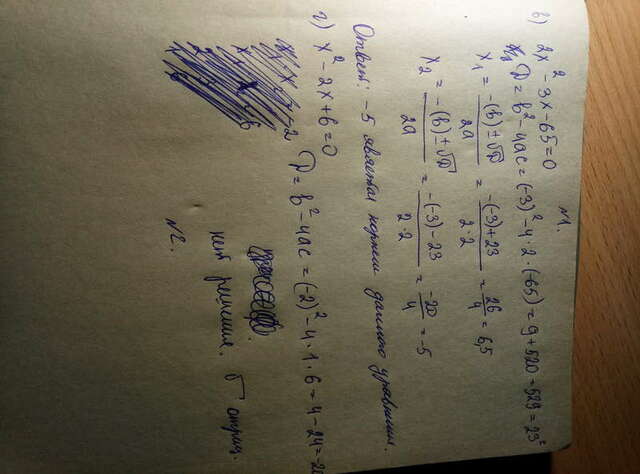 №1.
в) 2x² - 3x - 65 = 0
D = b² - 4ac = (-3)² - 4 · 2 · (-65) = 9 + 520 = 529 = 23²
x₁ = -(b) ± √D / 2a = -(-3) + 23 / 2 · 2 = 26 / 4 = 6,5
x₂ = -(b) ± √D / 2a = -(-3) - 23 / 2 · 2 = -20 / 4 = -5
Ответ: -5 является корнем данного уравнения.
г) x² - 2x + 6 = 0 D = b² - 4ac = (-2)² - 4 · 1 · 6 = 4 - 24 = -2
нет решения. отриц.
№2.